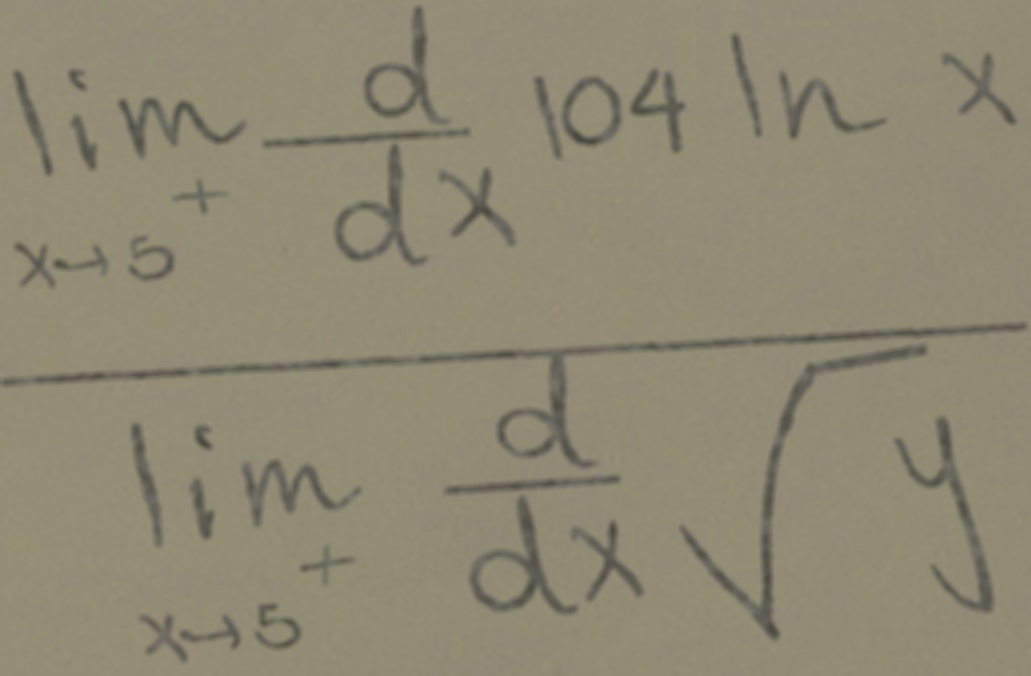 \frac{\lim_{x \to 5^+} \frac{d}{dx} 104 \ln x}{\lim_{x \to 5^+} \frac{d}{dx} \sqrt{y}}